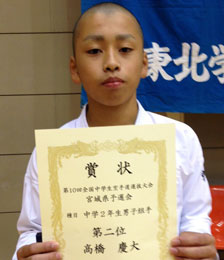 東北学
賞状
第10回全国中学生空手道選抜大会
宮城県予選会
種目 中学2年生男子組手
第二位
高橋 慶大